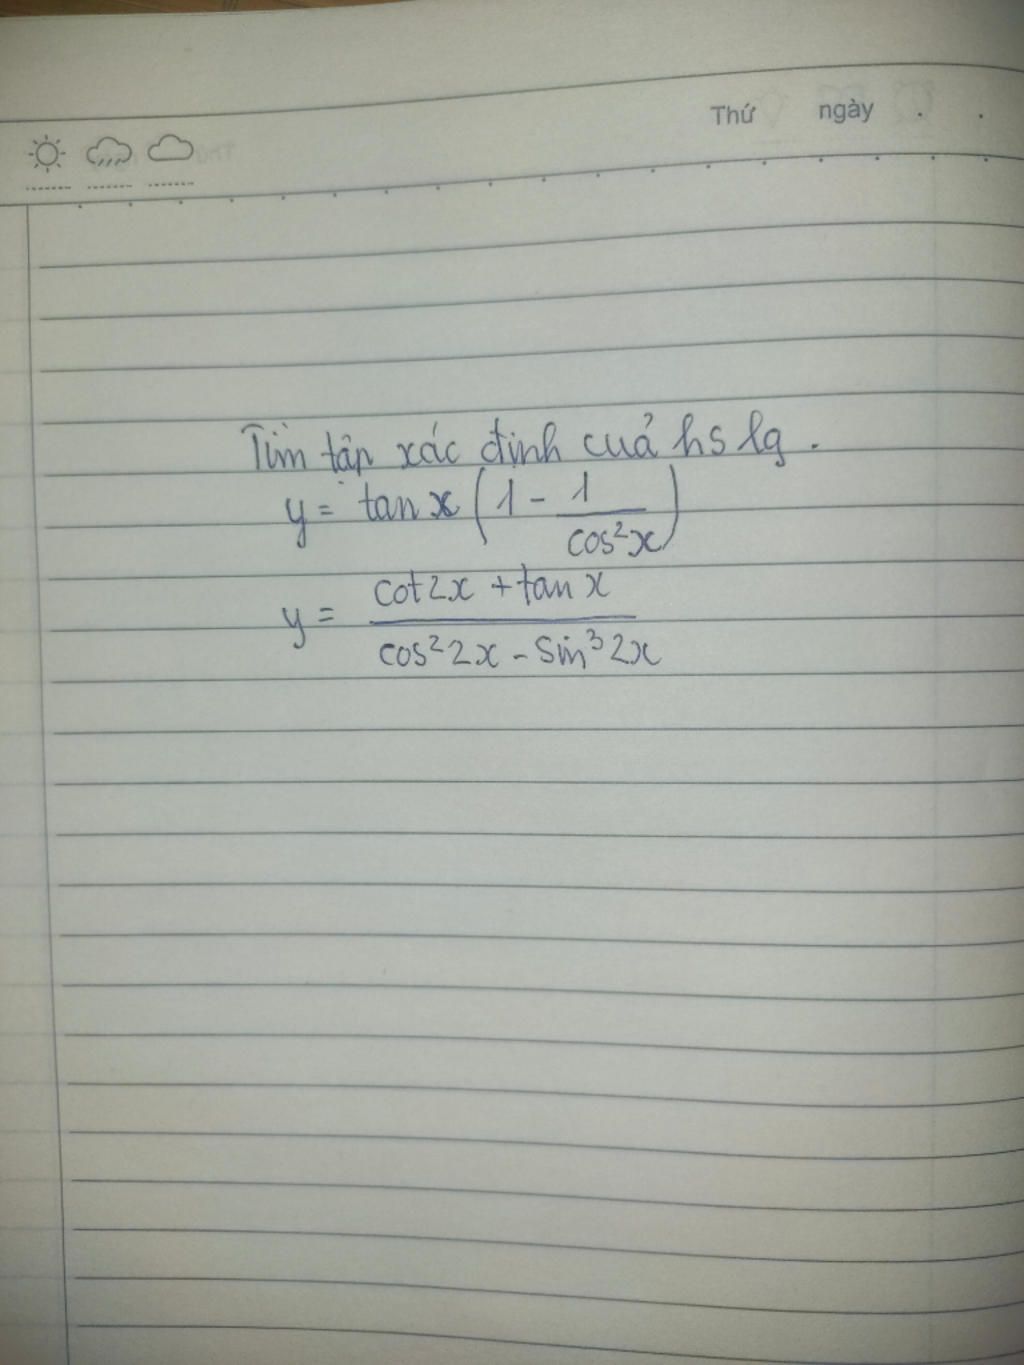 Thứ ngày . .
Tìm tập xác định cuả hs lg .
y = tan x (1 - 1/cos²x)
y = (cot2x + tan x)/(cos²2x - sin³2x)